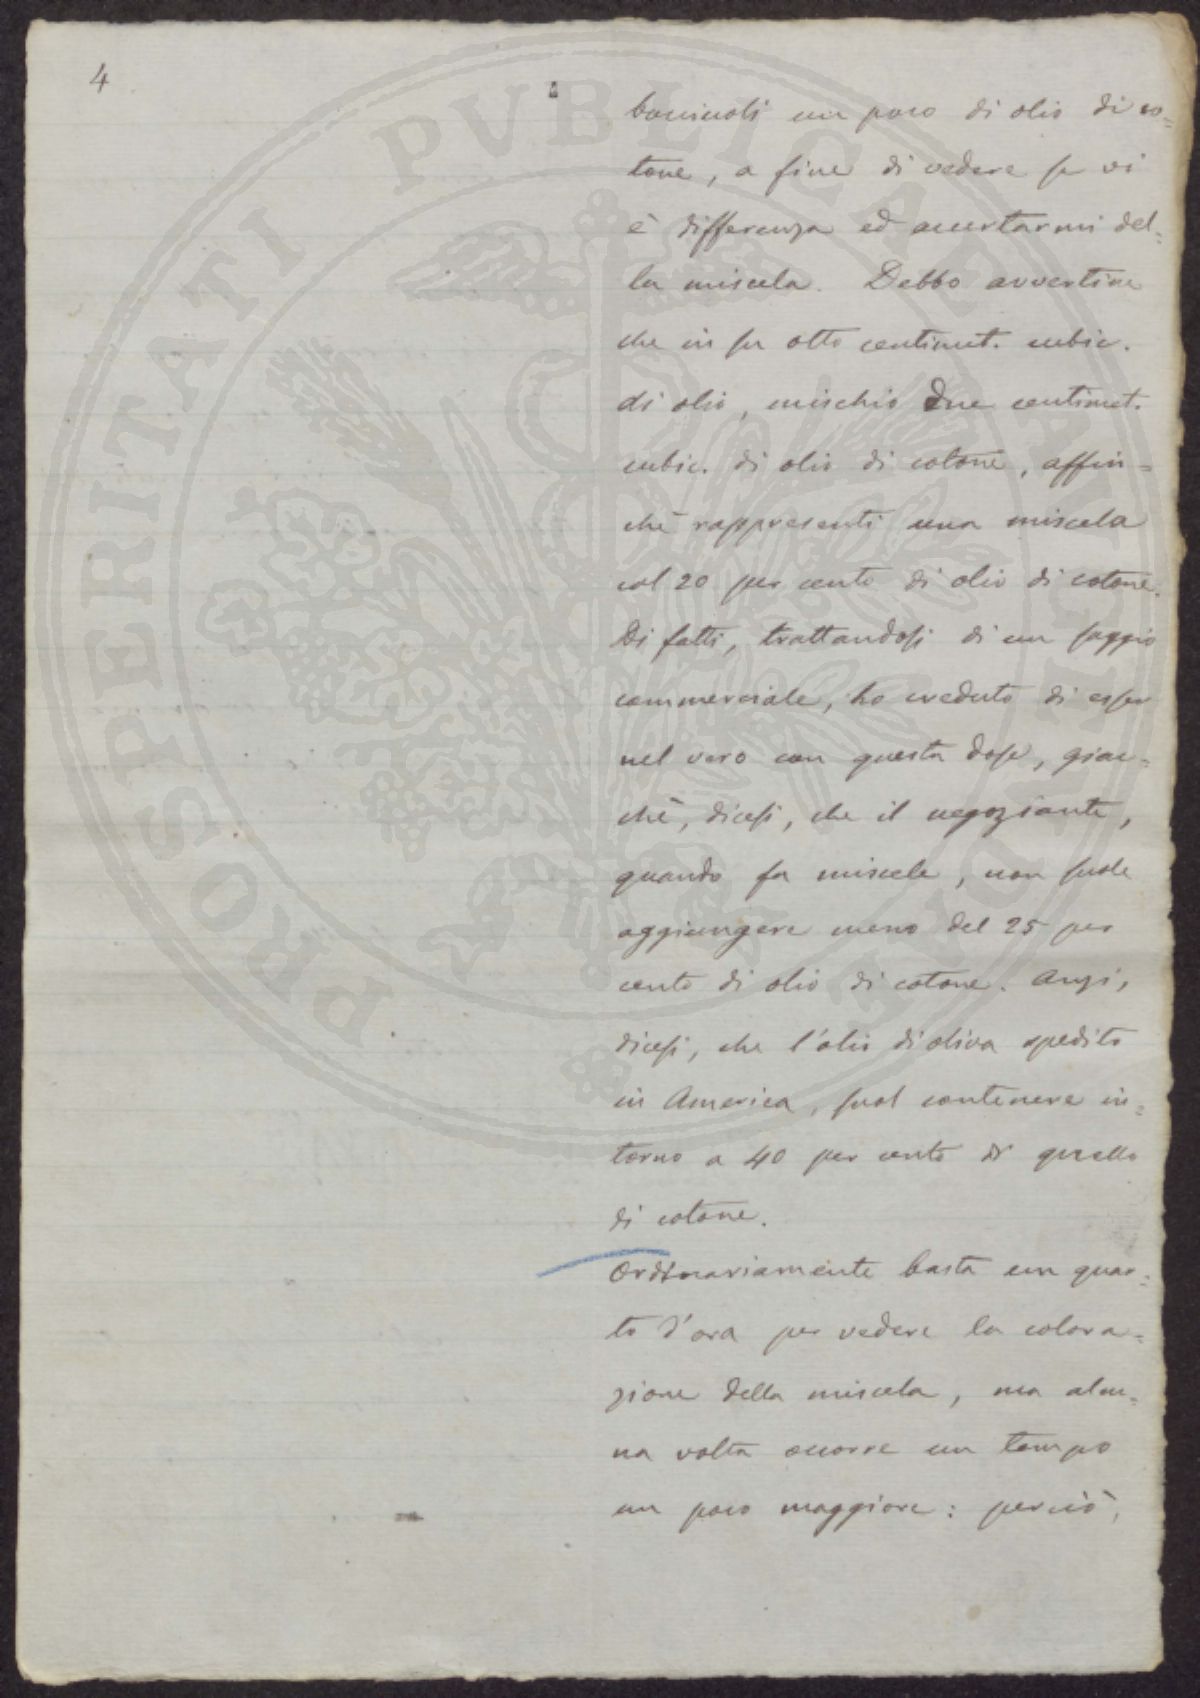 4
un poco di olio di co=
tone, a fine di vedere se vi
è differenza ed accertarmi del=
la miscela. Debbo avvertire
che in su otto centimet. cubic.
di olio, mischio due centimet.
cubic. di olio di cotone, affin=
chè rappresenti una miscela
col 20 per cento di olio di cotone.
Di fatti, trattandosi di un saggio
commerciale, ho creduto di esser
nel vero con questa dose, giac=
chè, dicesi, che il negoziante,
quando fa miscele, non suole
aggiungere meno del 25 per
cento di olio di cotone. Anzi,
dicesi, che l'olio di oliva spedito
in America, suol contenere in=
torno a 40 per cento di quello
di cotone.
Ordinariamente basta un quar=
to d'ora per vedere la colora=
zione della miscela, ma alcu=
na volta occorre un tempo
un poco maggiore: perciò,
PROSPERITATI PVBLICAE AVGENDAE